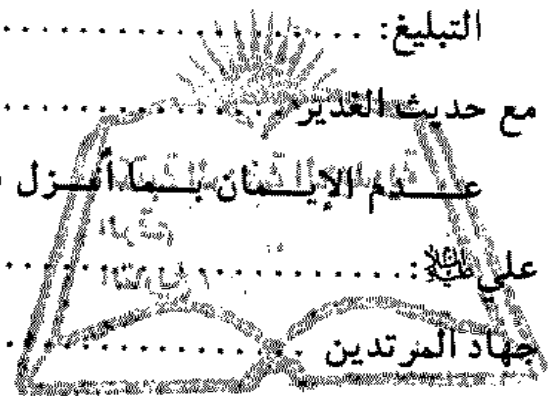 التبليغ: ........................
مع حديث الغدير ........................
عدم الإيمان بما أنزل
علي عليه السلام: ........................
جهاد المرتدين ........................